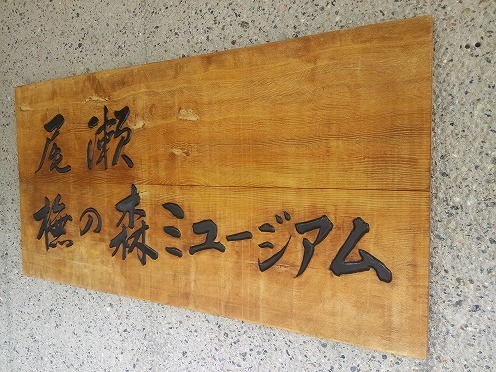 尾瀬
橅の森ミュージアム